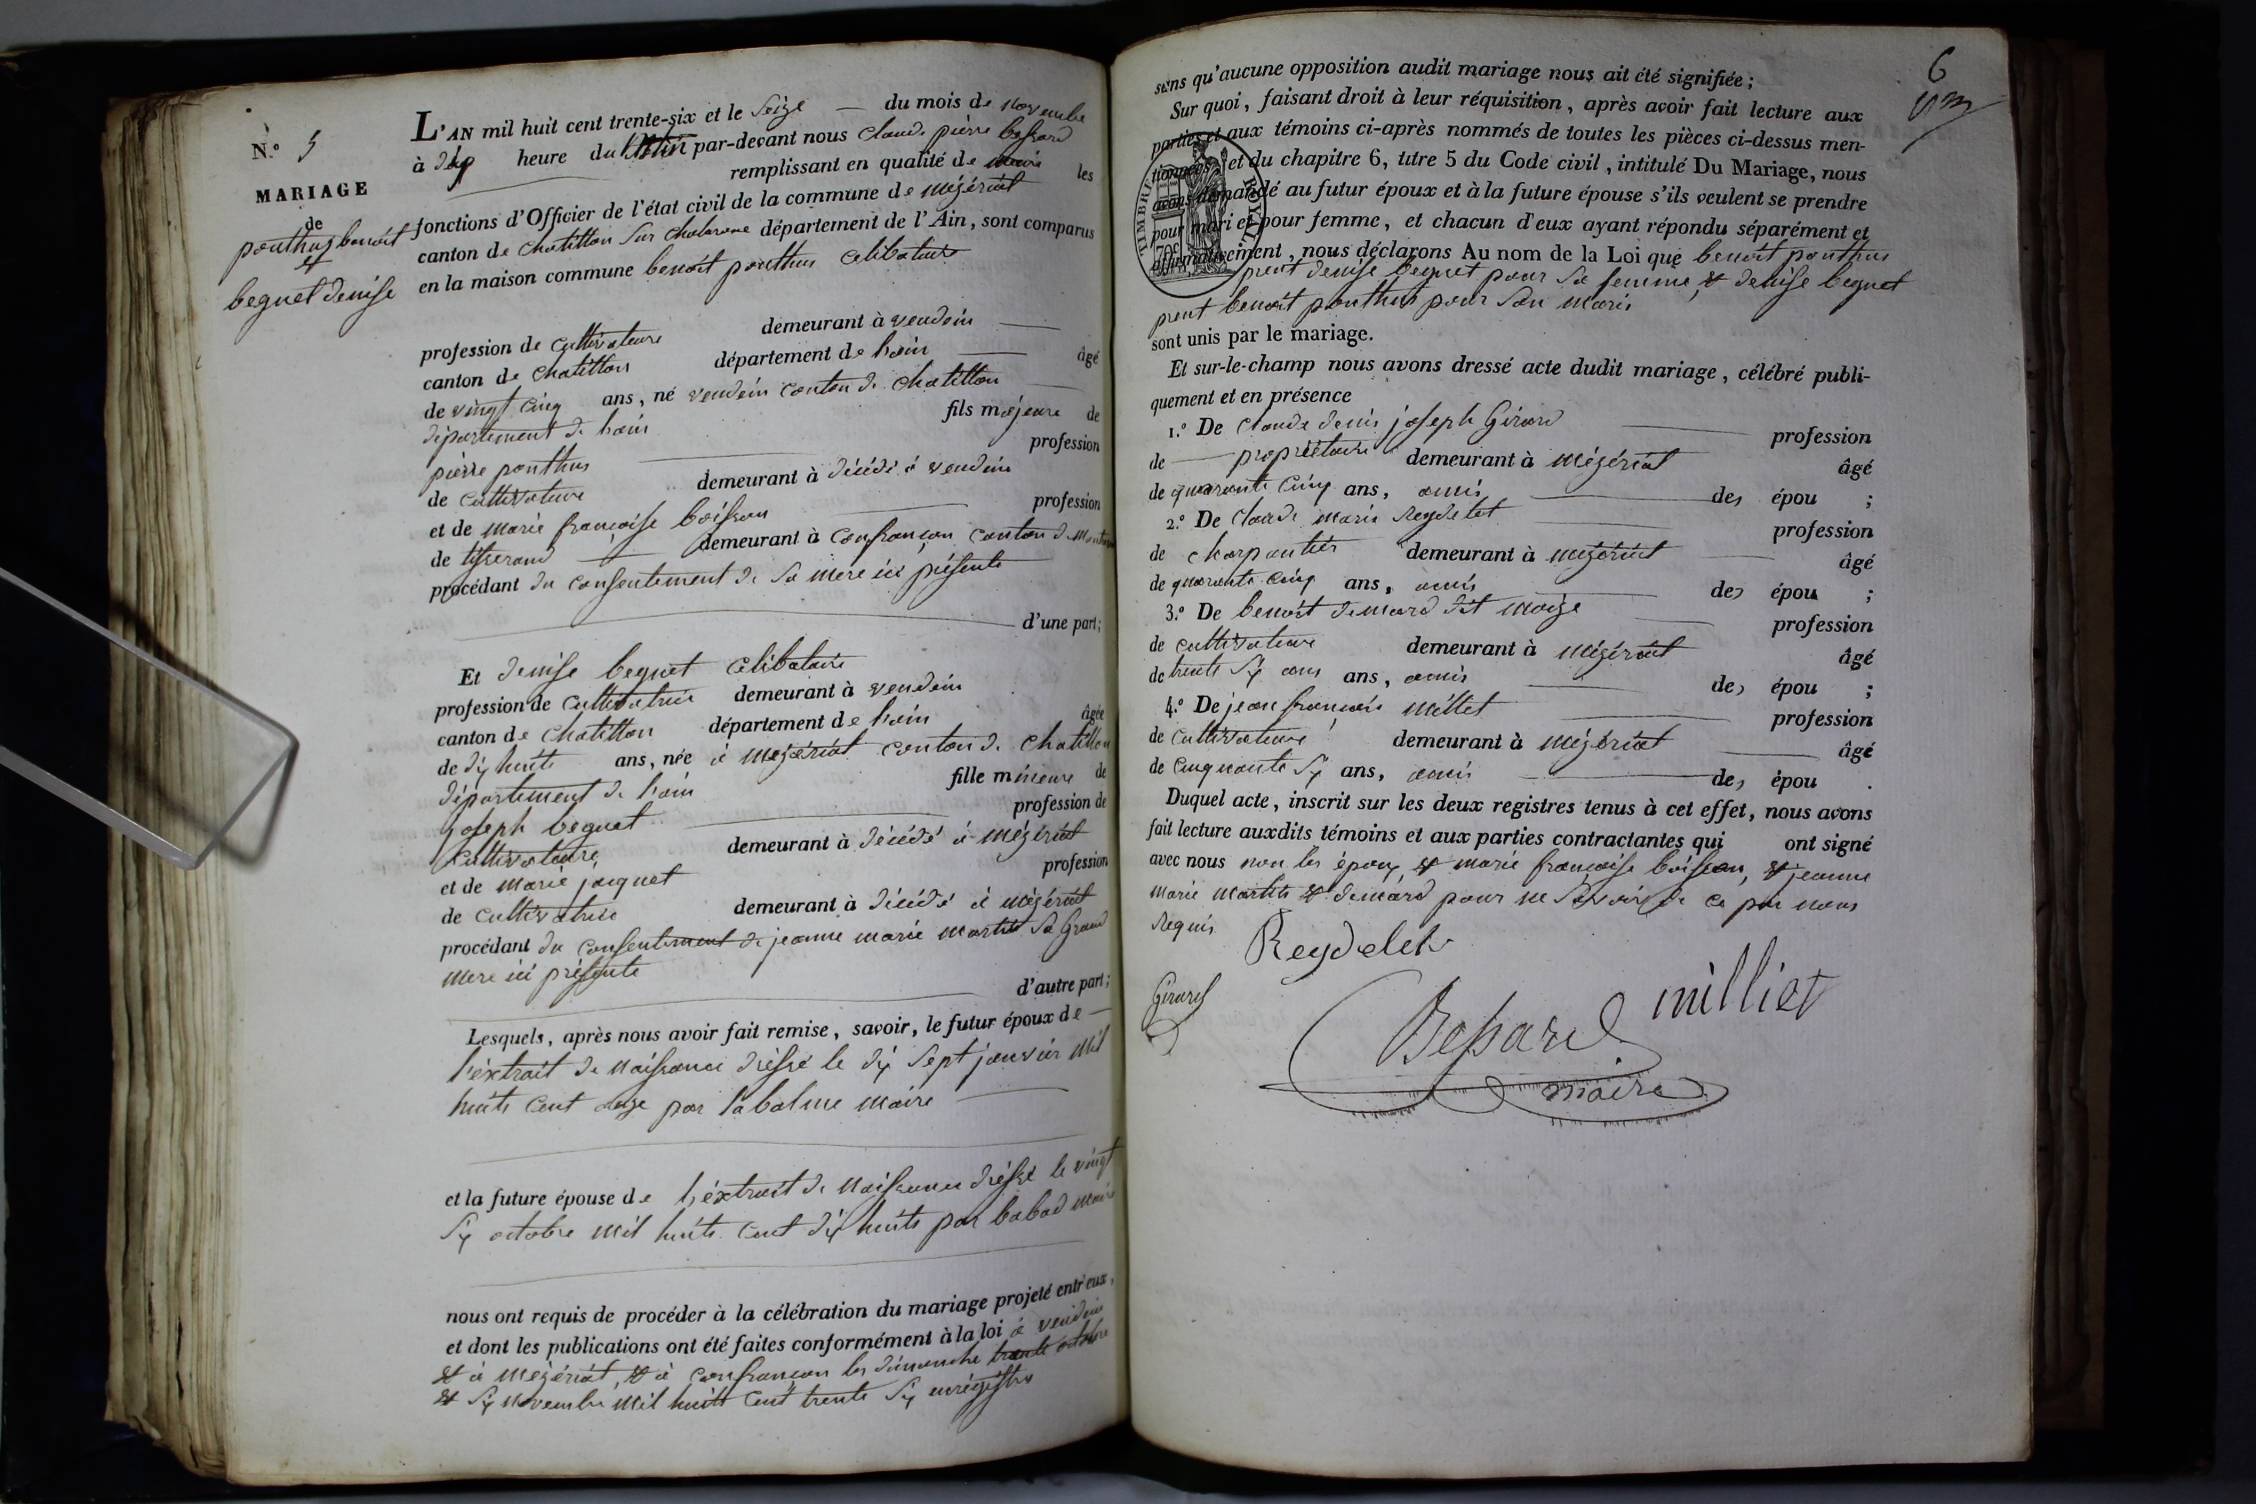 N.° 5
MARIAGE
de
ponthus benoit
et
beguet denise
L'AN mil huit cent trente-six et le seize du mois de novembre
à dix heure du matin par-devant nous claude pierre bessard
remplissant en qualité de maire les
fonctions d'Officier de l'état civil de la commune de mézériat
canton de chatillon sur chalaronne département de l'Ain, sont comparus
en la maison commune benoit ponthus celibataire
profession de cultivateure demeurant à vendein
canton de chatillon département de l'ain âgé
de vingt cinq ans, né vendein canton de chatillon
département de l'ain fils majeure de
pierre ponthus profession
de cultivateure demeurant à décédé à vendein
et de marie françoise boisson profession
de tisserand demeurant à confrançon canton de
procédant du consentement de sa mere ici présente
d'une part;
Et denise beguet celibataire
profession de cultivatrice demeurant à vendein
canton de chatillon département de l'ain âgée
de dix huits ans, née à mézériat canton de chatillon
département de l'ain fille mineure de
joseph beguet profession de
cultivateure demeurant à décédé à mézériat
et de marie jacquet profession
de cultivatrice demeurant à décédé à mézériat
procédant du consentement de jeanne marie martin sa grand
mere ici présente
d'autre part;
Lesquels, après nous avoir fait remise, savoir, le futur époux de
l'éxtrait de naissance dréssé le dix sept janvier mil
huits cent onze par labalme maire
et la future épouse de l'éxtrait de naissance dréssé le vingt
six octobre mil huits cent dix huits par babad maire
nous ont requis de procéder à la célébration du mariage projeté entr'eux,
et dont les publications ont été faites conformément à la loi à vendein
et à mézériat, et à confrançon les dimanche trente octobre
et six novembre mil huits cent trente six
6
sans qu'aucune opposition audit mariage nous ait été signifiée;
Sur quoi, faisant droit à leur réquisition, après avoir fait lecture aux
parties et aux témoins ci-après nommés de toutes les pièces ci-dessus men-
tionnées, et du chapitre 6, titre 5 du Code civil, intitulé Du Mariage, nous
avons demandé au futur époux et à la future épouse s'ils veulent se prendre
pour mari et pour femme, et chacun d'eux ayant répondu séparément et
affirmativement, nous déclarons Au nom de la Loi que benoit ponthus
prent denise beguet pour sa femme, et denise beguet
prent benoit ponthus pour son maris
sont unis par le mariage.
TIMBRE ROYAL
70c
Et sur-le-champ nous avons dressé acte dudit mariage, célébré publi-
quement et en présence
1.° De claude denis joseph Girard profession
de propriétaire demeurant à mézériat âgé
de quarante cinq ans, amis des épou ;
2.° De claude marie Reydelet profession
de charpantier demeurant à mézériat âgé
de quarante cinq ans, amis des épou ;
3.° De benoit demard dit moize profession
de cultivateure demeurant à mézériat âgé
de trente six ans ans, amis des épou ;
4.° De jean françois milliet profession
de cultivateure demeurant à mézériat âgé
de cinquante six ans, amis des épou .
Duquel acte, inscrit sur les deux registres tenus à cet effet, nous avons
fait lecture auxdits témoins et aux parties contractantes qui ont signé
avec nous non les époux, et marie françoise boisson, et jeanne
marie martin et demard pour ne savoir de ce par nous
Requis
Reydelet
Girard
milliet
Bessard
maire